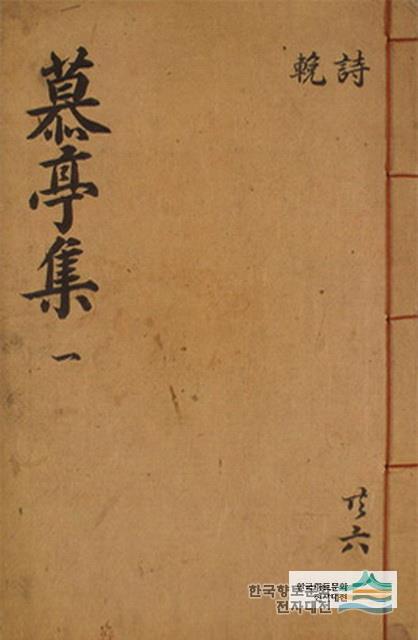 詩
輓
慕亭集
一
共六
한국향토문화
전자대전
한국향토문화
전자대전